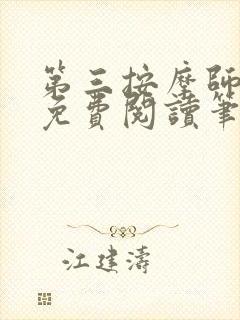 第三按摩師
免費閱讀筆
江建濤